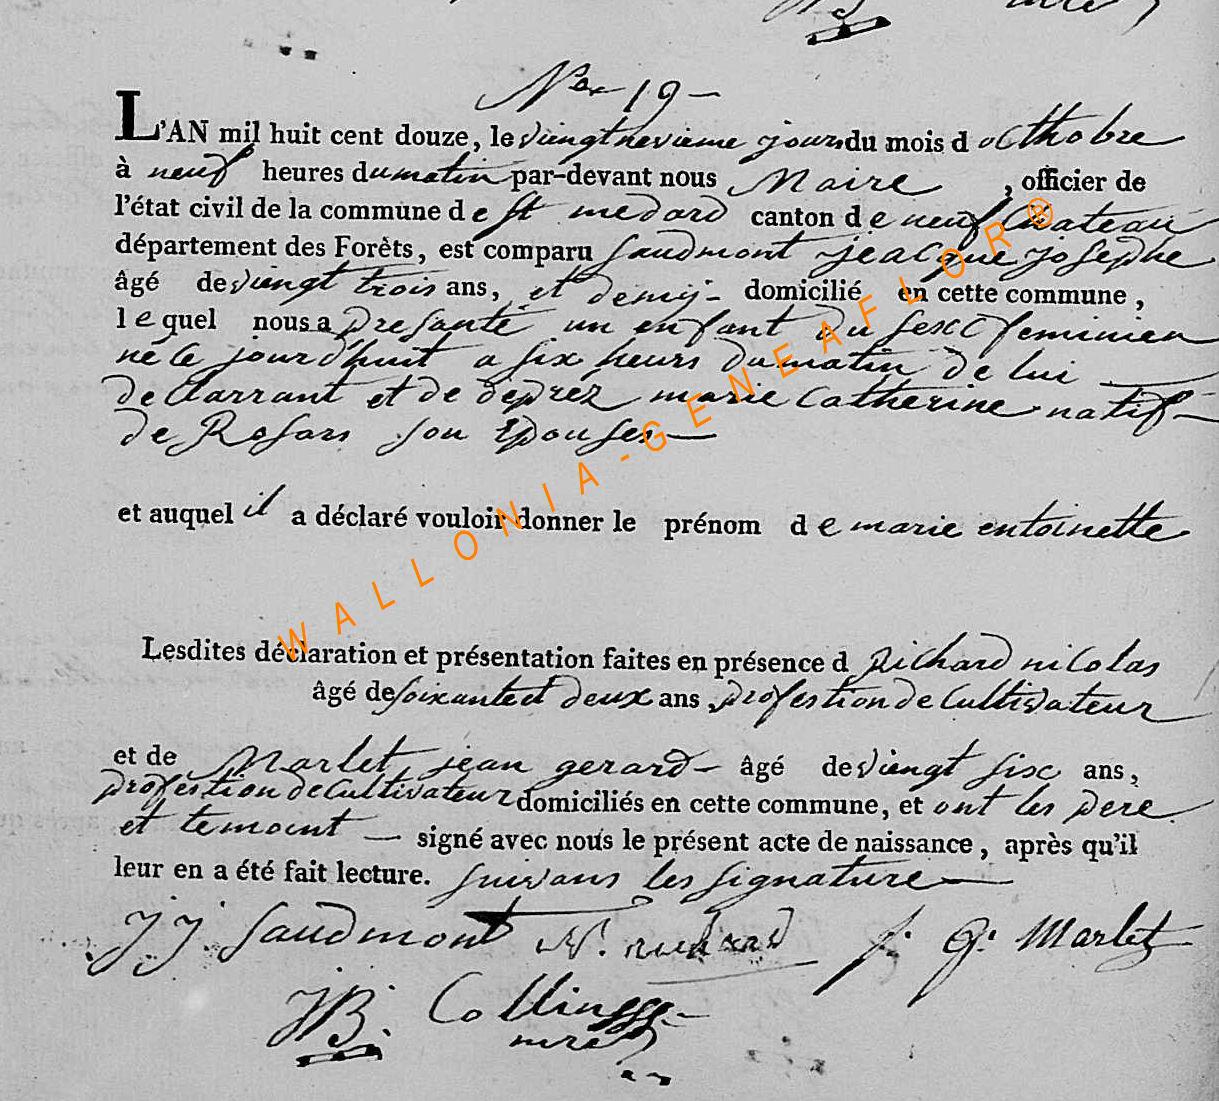 Nro 19
L'AN mil huit cent douze, le viengtnevieme jours du mois d octhobre
à neuf heures du matin par-devant nous Maire , officier de
l'état civil de la commune de st medard canton de neufchateau
département des Forêts, est comparu saudmont jeacque josephe
âgé de viengt trois ans, et demij - domicilié en cette commune,
lequel nous a presanté un enfant du sexe feminien
né le jourd'huit a six heurs du matin de lui
declarrant et de deprez marie catherine natif
de Rosars son epouses
et auquel il a déclaré vouloir donner le prénom de marie entoinette
Lesdites déclaration et présentation faites en présence d Richard nicolas
âgé de soixantet deux ans profestion de cultivateur
et de Marlet jean gerard - âgé de viengt six ans,
profestion de cultivateur domiciliés en cette commune, et ont les pere
et temoint — signé avec nous le présent acte de naissance, après qu'il
leur en a été fait lecture. suivans les signature
J J Saudmont N. richard j. G. Marlet
JB. Collin
mre
WALLONIA-GENEAFLOR®